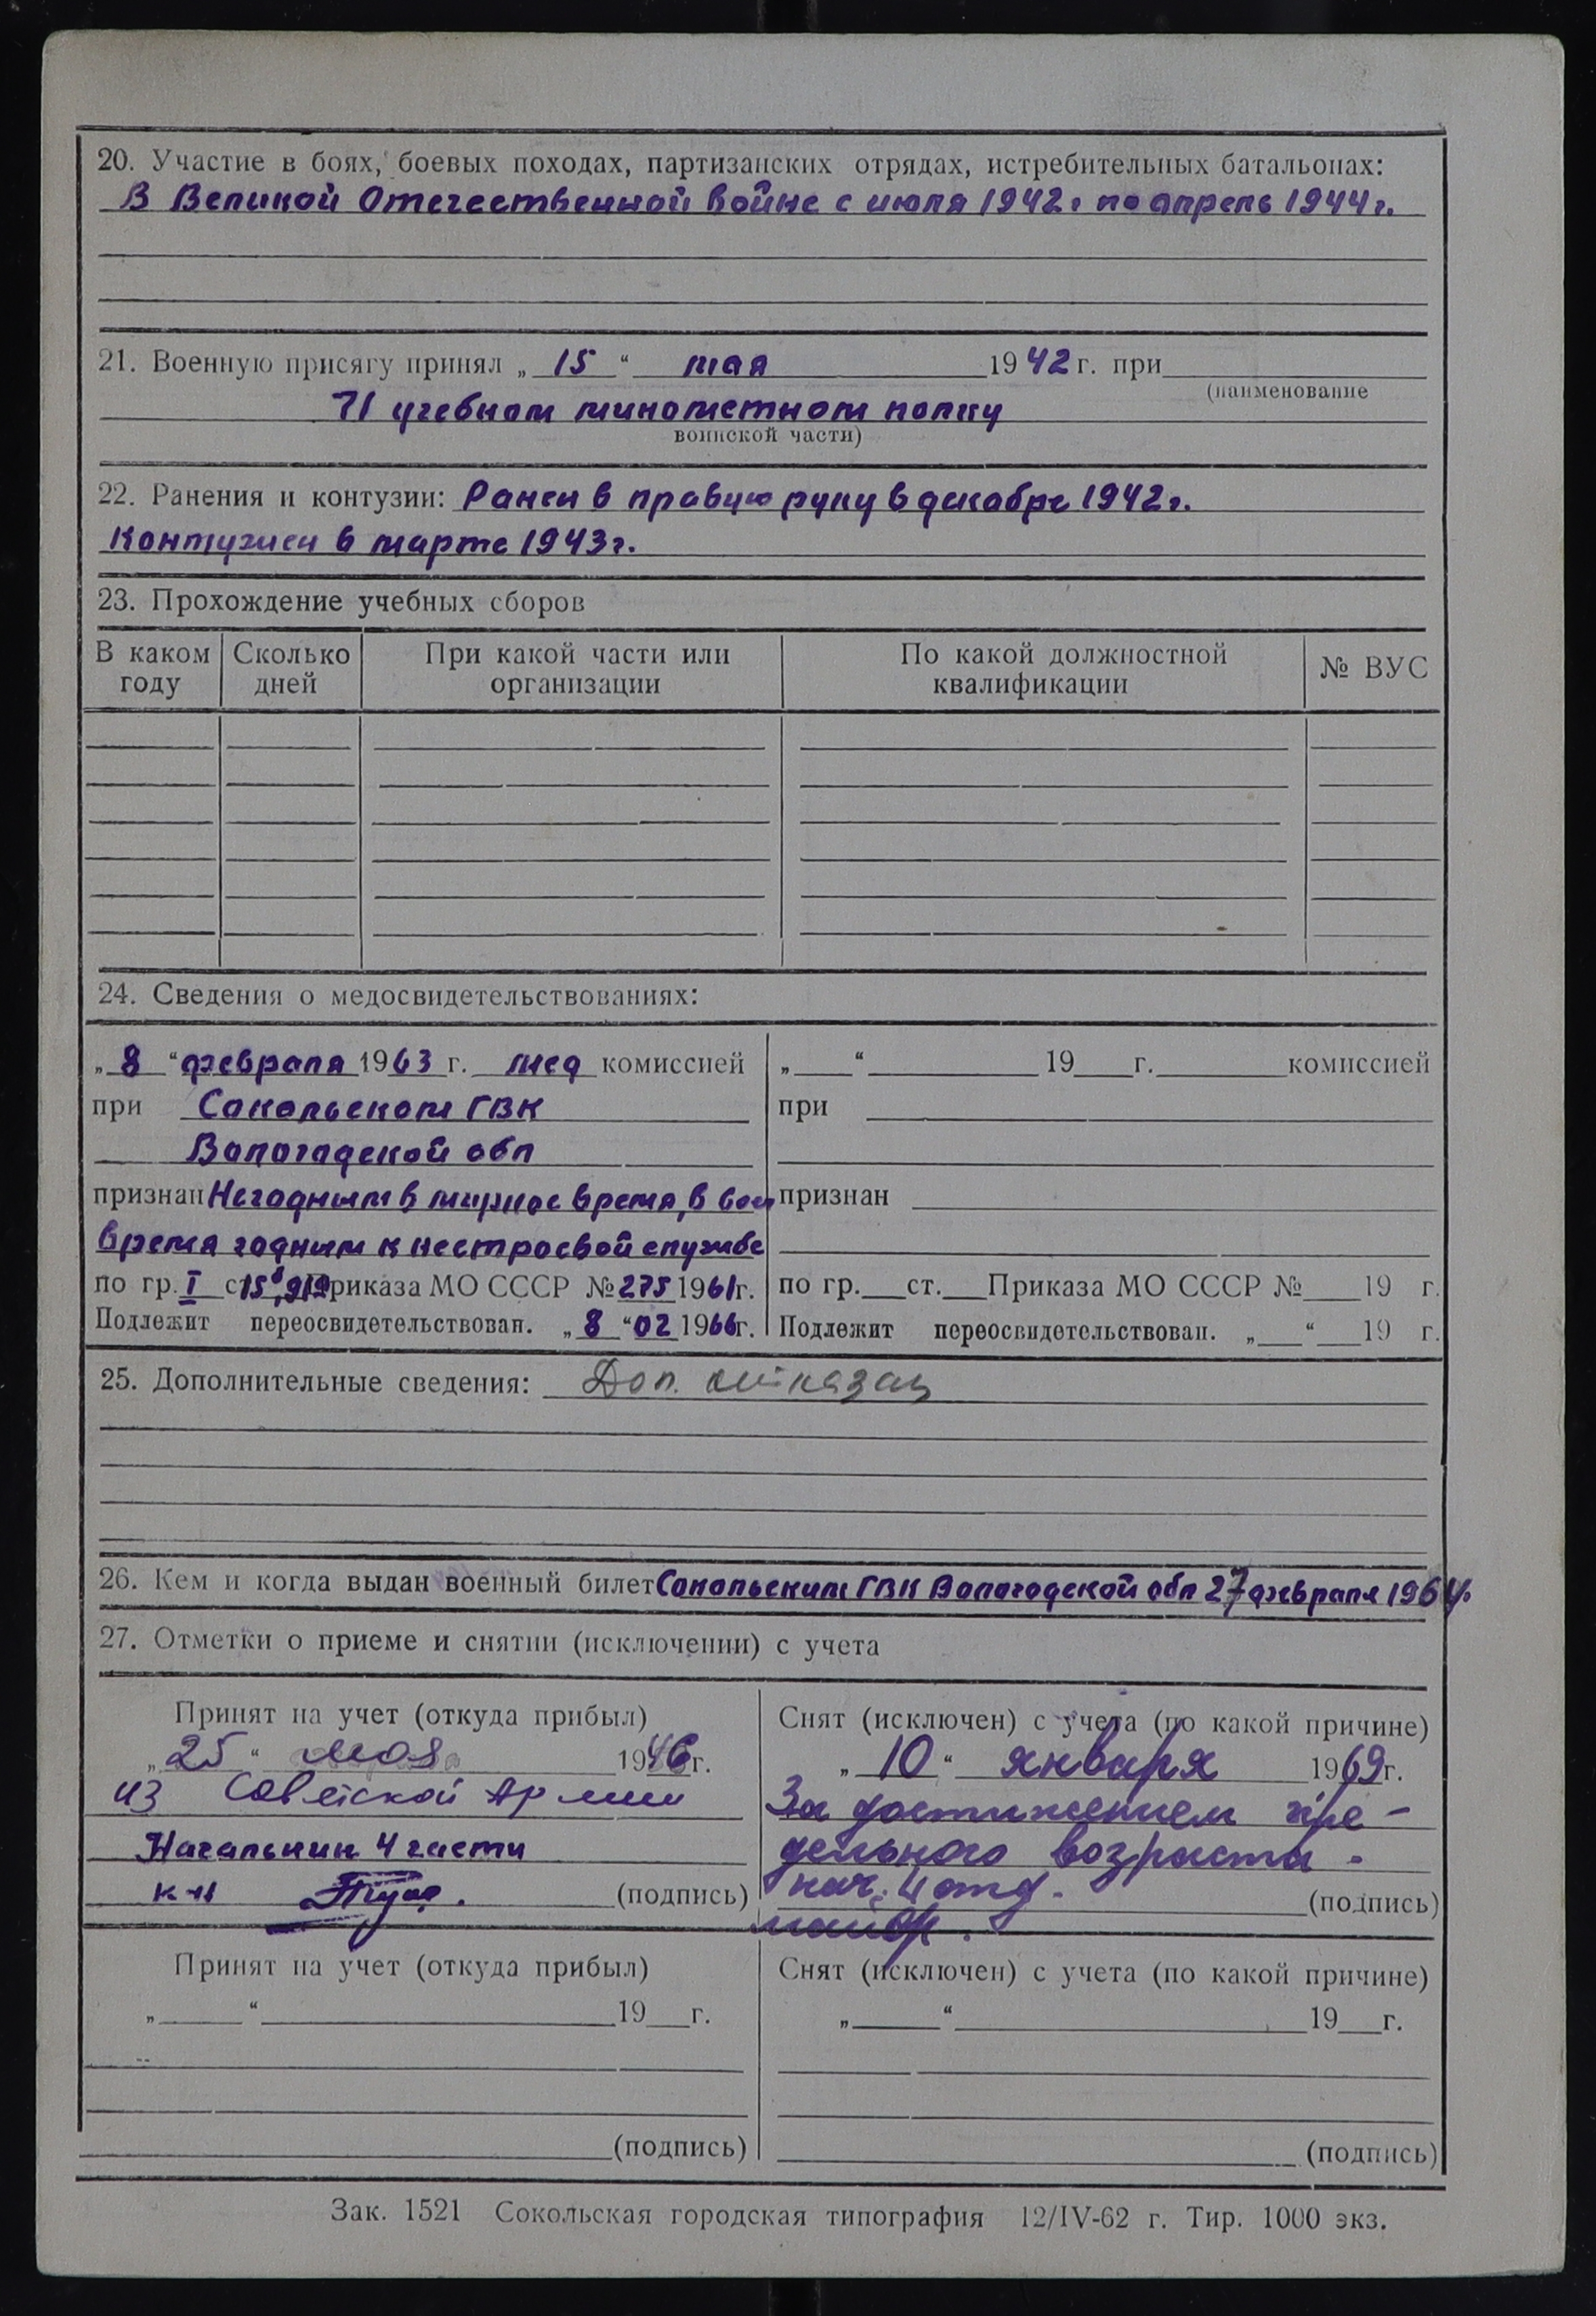 20. Участие в боях, боевых походах, партизанских отрядах, истребительных батальонах:
В Великой Отечественной войне с июля 1942г по апрель 1944г.
21. Военную присягу принял „15“ мая 1942 г. при
(наименование
71 учебном минометном полку
воинской части)
22. Ранения и контузии: Ранен в правую руку в декабре 1942г.
Контужен в марте 1943г.
23. Прохождение учебных сборов
В каком году Сколько дней При какой части или организации По какой должностной квалификации № ВУС
24. Сведения о медосвидетельствованиях:
„8“ февраля 1963 г. мед комиссией
при Сокольском ГВК
Вологодской обл
признан Негодным в мирное время, в воен
время годным к нестроевой службе
по гр. I ст. Приказа МО СССР № 275 1961г.
Подлежит переосвидетельствован. „8“ 02 1966г.
„ “ 19 г. комиссией
при
признан
по гр. ст. Приказа МО СССР № 19 г.
Подлежит переосвидетельствован. „ “ 19 г.
25. Дополнительные сведения: Доп.
26. Кем и когда выдан военный билет Сокольским ГВК Вологодской обл 27 февраля 1964г.
27. Отметки о приеме и снятии (исключении) с учета
Принят на учет (откуда прибыл)
„25“ мая 1946г.
из Советской Армии
Начальник 4 части
к-н (подпись)
Снят (исключен) с учета (по какой причине)
„10“ января 1969г.
За достижением пре-
дельного возраста.
нач. 4 отд. (подпись)
майор.
Принят на учет (откуда прибыл)
„ “ 19 г.
(подпись)
Снят (исключен) с учета (по какой причине)
„ “ 19 г.
(подпись)
Зак. 1521 Сокольская городская типография 12/IV-62 г. Тир. 1000 экз.